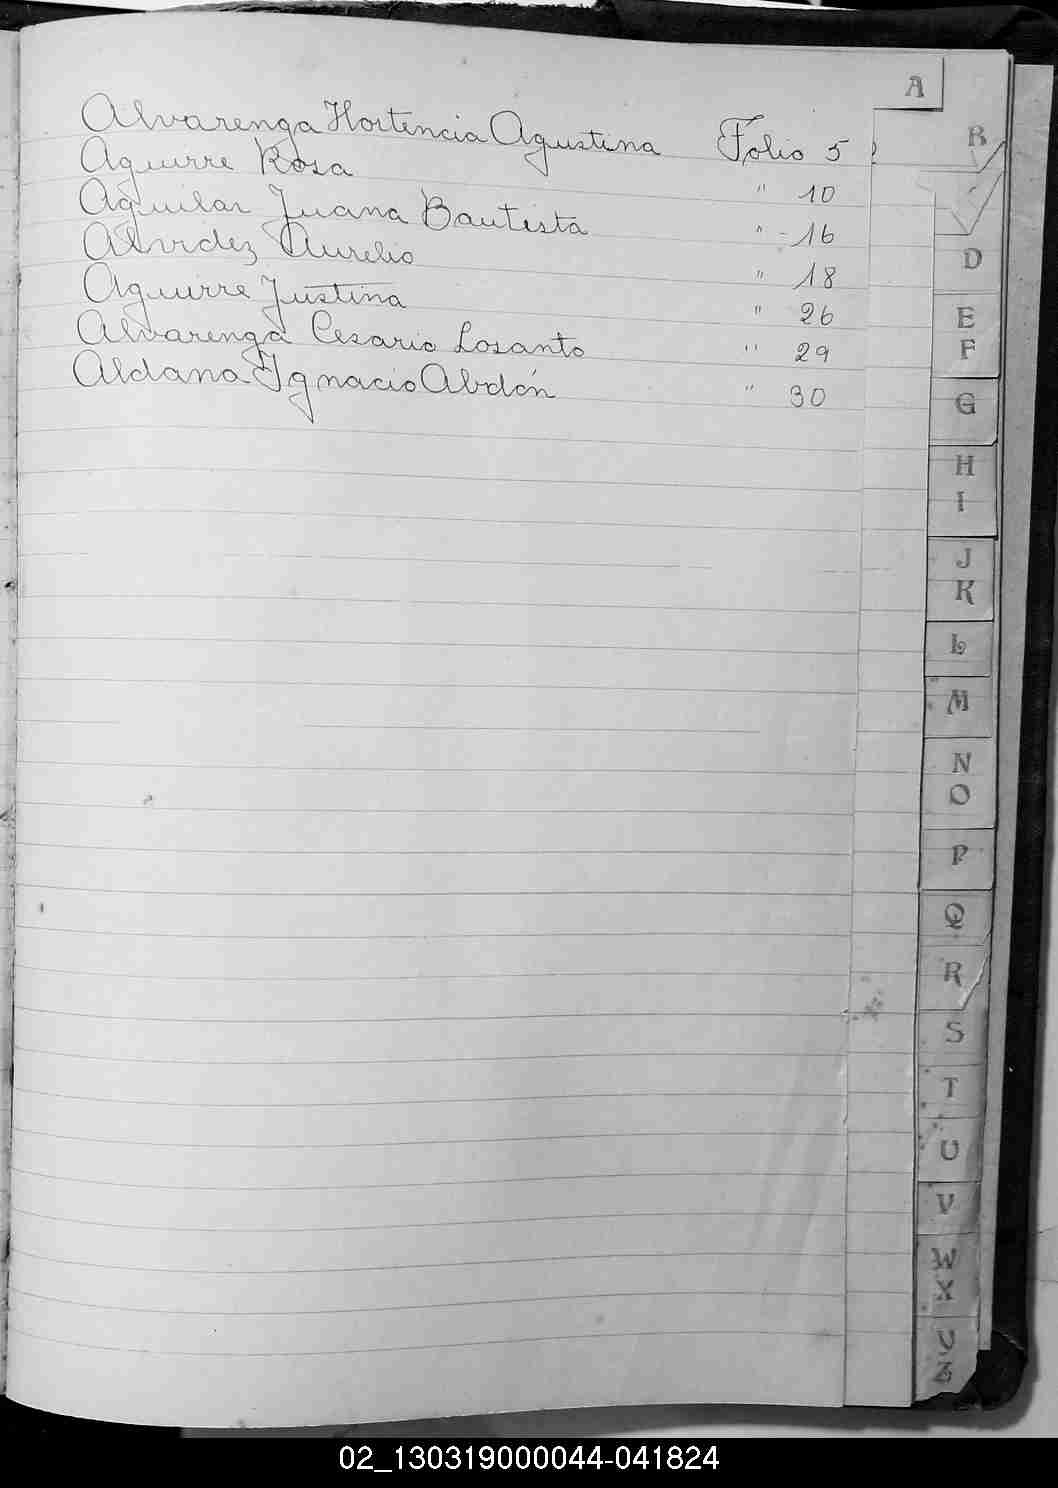 A
Alvarenga Hortencia Agustina Folio 5
Aguirre Rosa " 10
Aguilar Juana Bautista " 16
Alvidez Aurelio " 18
Aguirre Justina " 26
Alvarenga Cesario Losanto " 29
Aldana Ignacio Abdón " 30
B
D
E
F
G
H
I
J
K
L
M
N
O
P
Q
R
S
T
U
V
W
X
Z
02_130319000044-041824